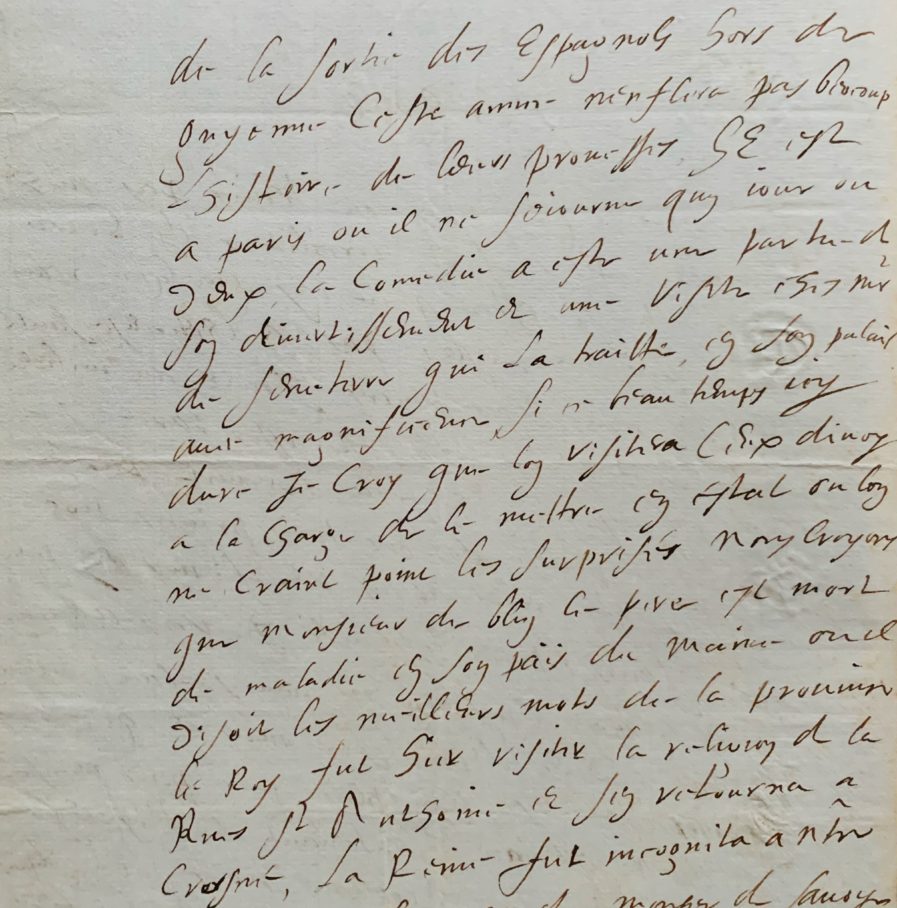 de la sortie des Espagnols hors de
guyenne Ceste annee n'enflera pas beaucoup
L'histoire de leurs prouesses, est
a paris ou il ne seiourne quun iour ou
deux, la Comedie a esté une partie de
son divertissement et une visite ches mr
de qui La traitté, en son palais
avec magnificence, Si ce beau temps icy
dure Je Croy que lon visitera Ceux
a la charge de le mettre en estat ou lon
ne Craint point les surprises Nous Croyons
que Monsieur de le pere est mort
de maladie en son païs du Maine ou il
disoit les meilleurs mots de la province
le Roy fut hier visiter la de la
Rue St Anthoine et sen retourna a
La Reine fut incognita a nre
de